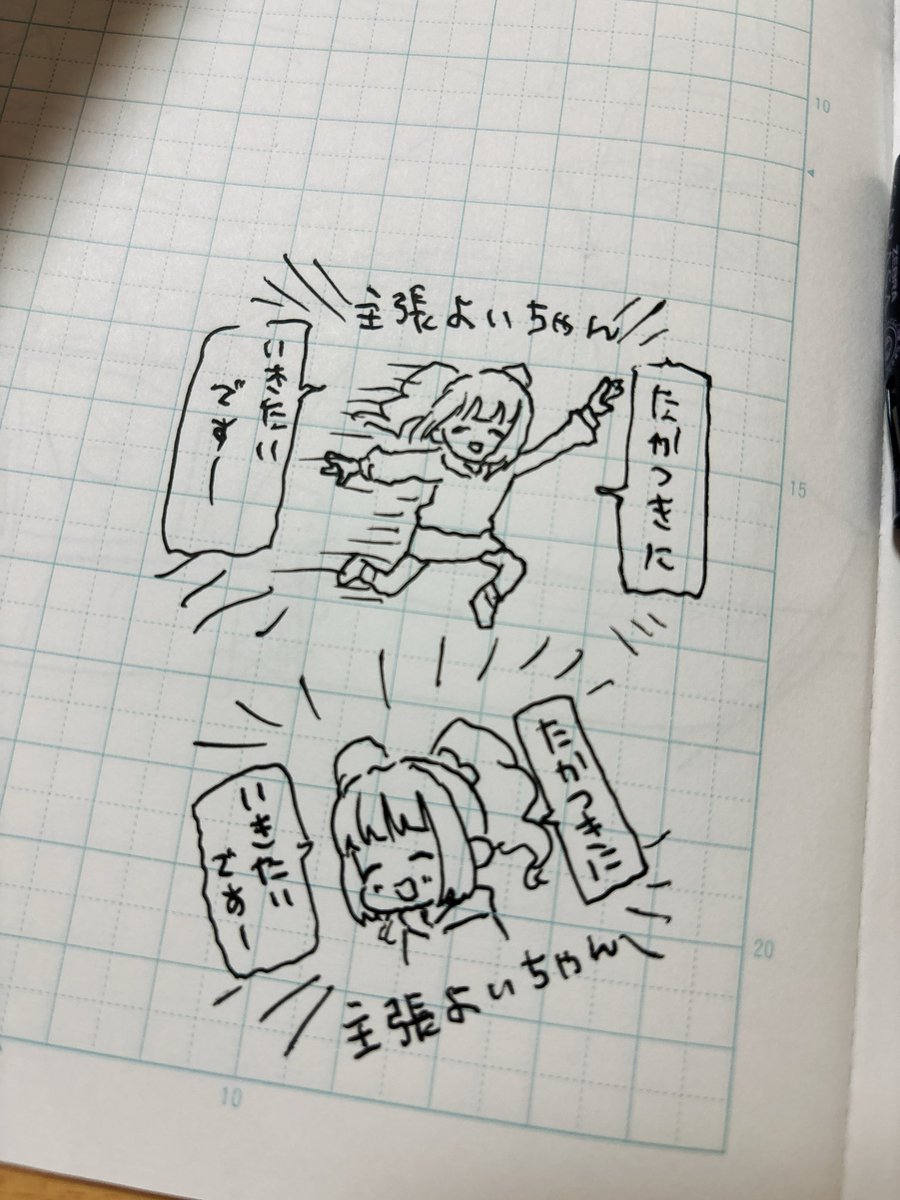 10
主張よいちゃん
たかつきに
いきたい
ですー
15
たかつきに
いきたい
ですー
主張よいちゃん
20
10